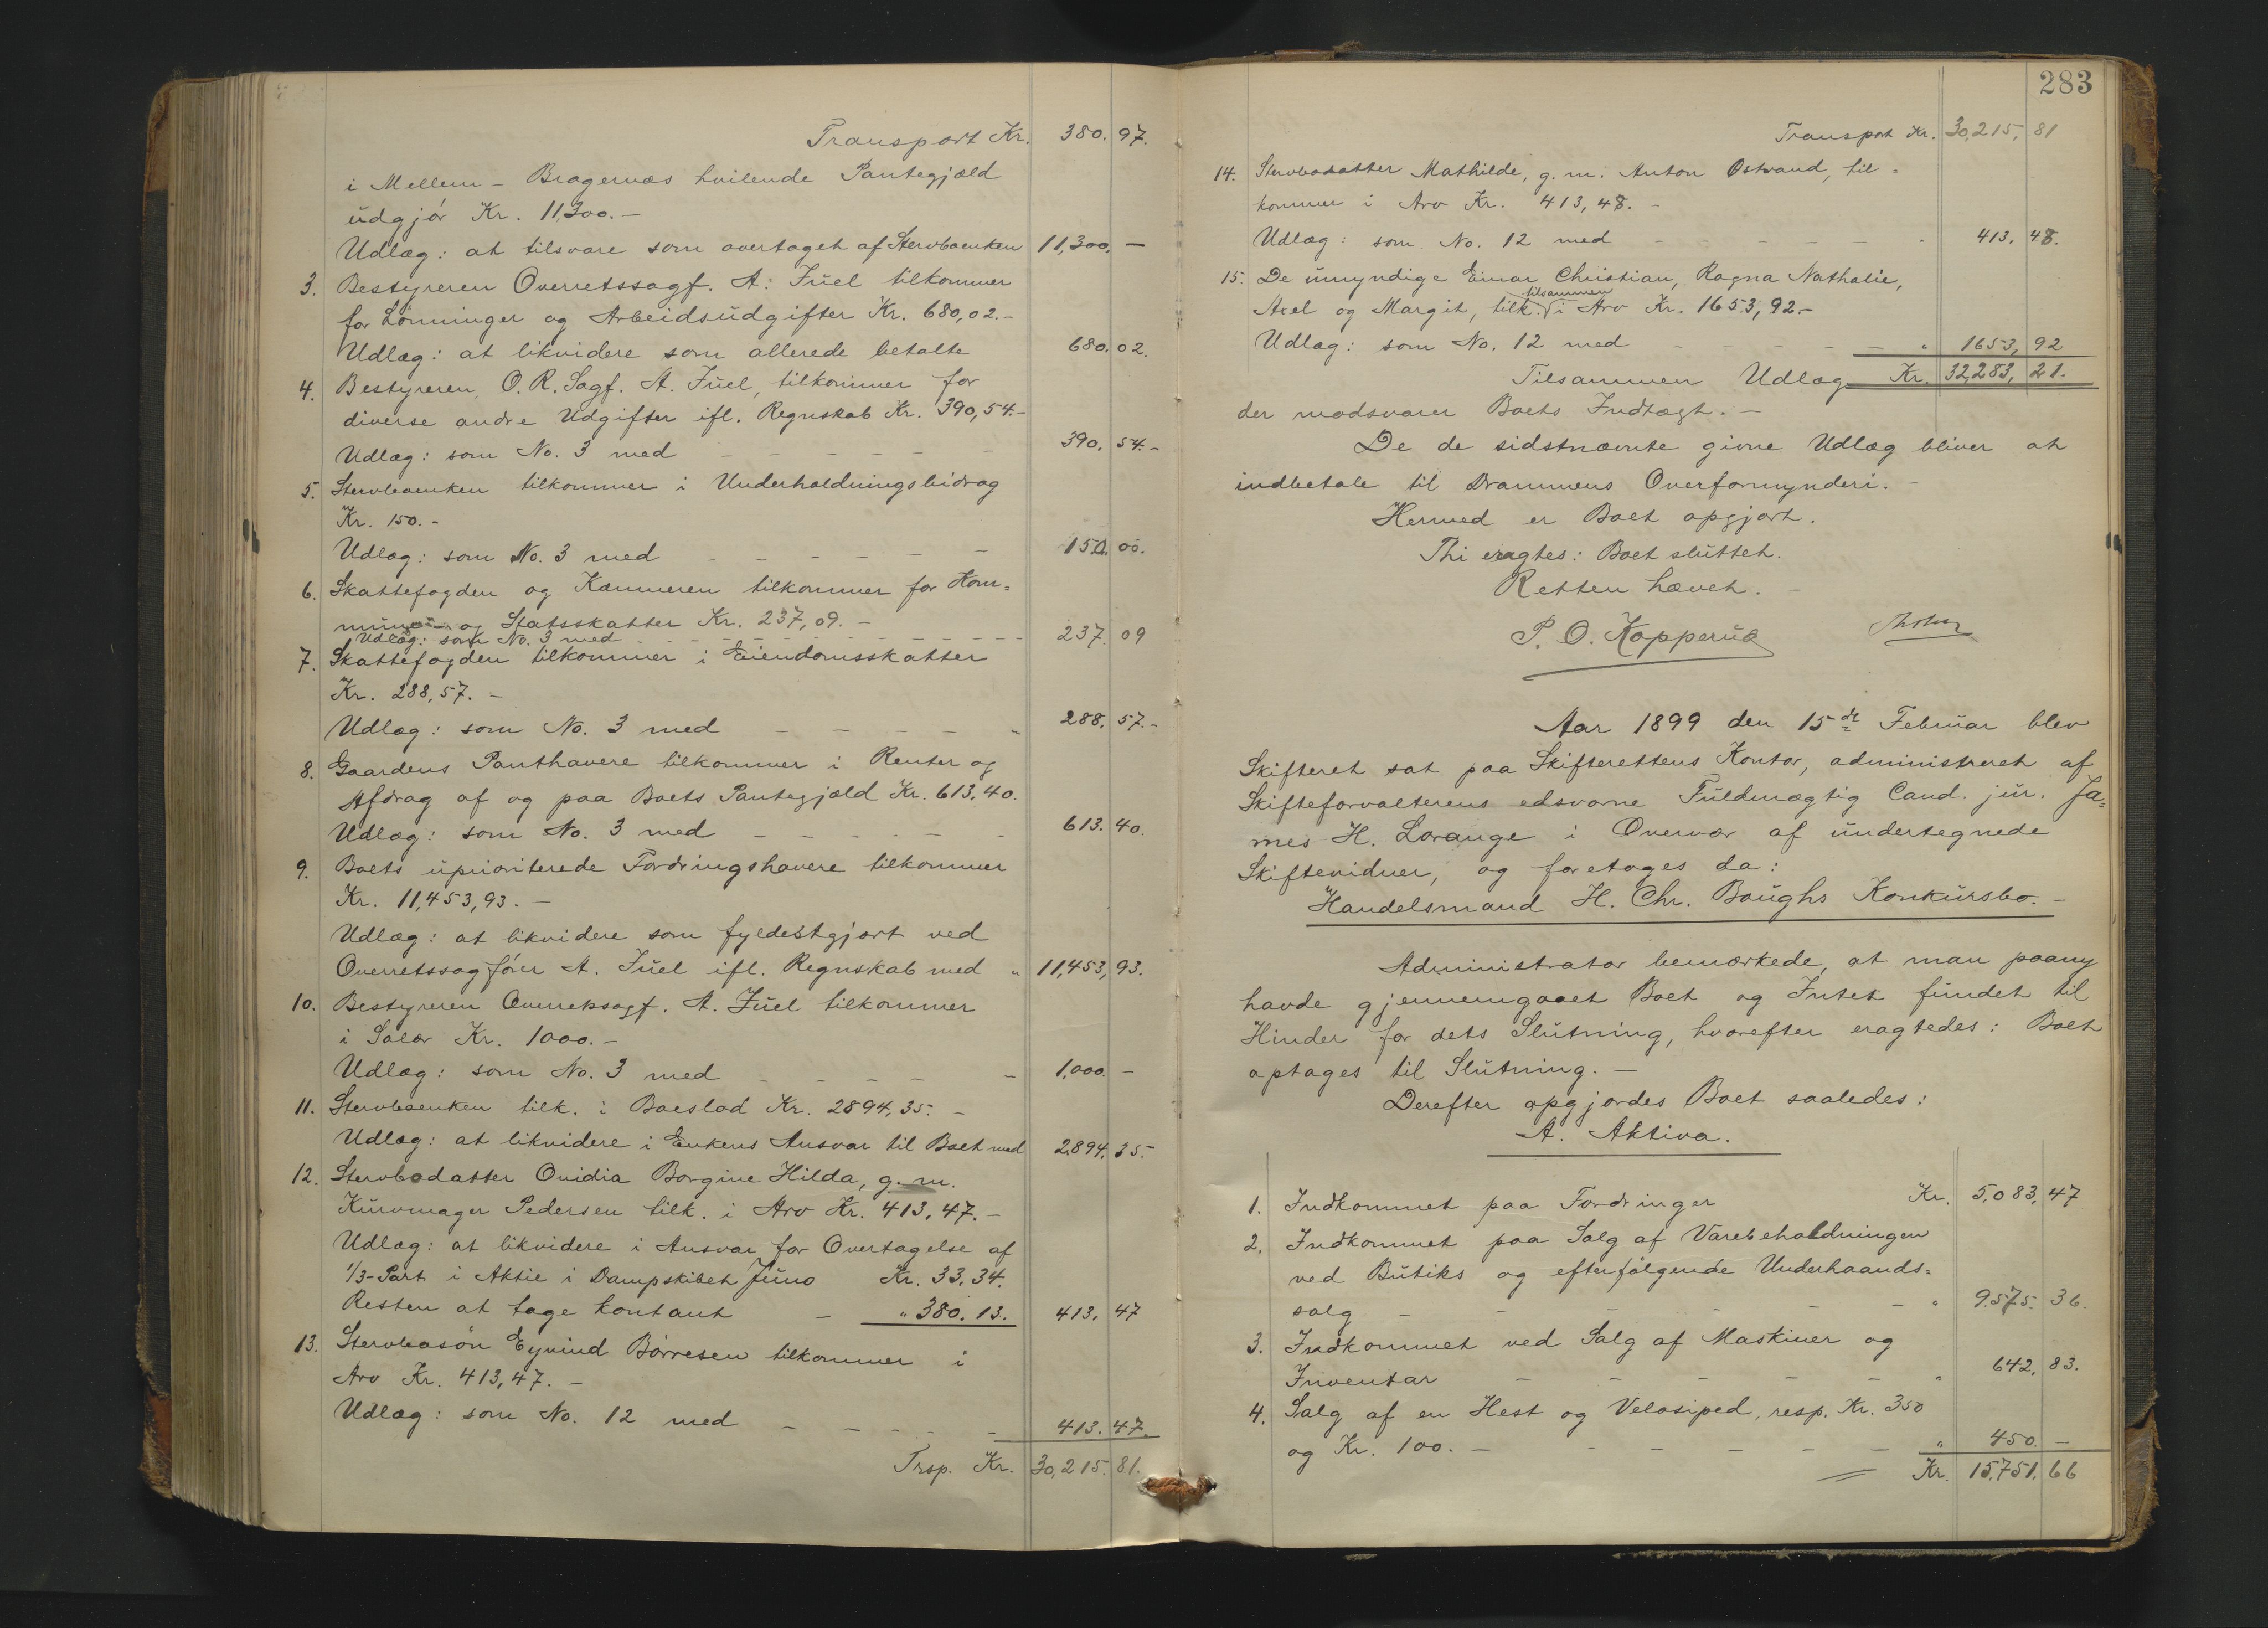 Transport Kr. 380. 97.
i Mellem - Bragernæs hvilende Pantegjæld
udgjør Kr. 11,300. -
Udlæg: at tilsvare som overtaget af Stervboenken 11,300. -
3. Bestyreren Overretssagf. A. Juel tilkommer
for Lønninger og Arbeidsudgifter Kr. 680,02. -
Udlæg: at likvidere som allerede betalte 680. 02.
4. Bestyreren, O.R. Sagf. A. Juel, tilkommer for
diverse andre Udgifter ifl. Regnskab Kr. 390,54. -
Udlæg: som No. 3 med - - - - - - 390. 54. -
5. Stervboenken tilkommer i Underholdningsbidrag
Kr. 150. -
Udlæg: som No. 3 med - - - - - - 150. 00.
6. Skattefogden og Kæmneren tilkommer for Kom-
mune- og Statsskatter Kr. 237,09. -
Udlæg: som No. 3 med - - - - - - 237. 09
7. Skattefogden tilkommer i Eiendomsskatter
Kr. 288,57. -
Udlæg: som No. 3 med - - - - - " 288. 57. -
8. Gaardens Panthavere tilkommer i Renter og
Afdrag af og paa Boets Pantegjæld Kr. 613,40.
Udlæg: som No. 3 med - - - - - - 613. 40.
9. Boets uprioriterede Fordringshavere tilkommer
Kr. 11,453,93. -
Udlæg: at likvidere som fyldestgjort ved
Overretssagfører A. Juel ifl. Regnskab med " 11,453, 93.
10. Bestyreren Overretssagf. A. Juel tilkommer
i Salær Kr. 1000. -
Udlæg: som No. 3 med - - - - - 1,000. -
11. Stervboenken tilk. i Boeslod Kr. 2894,35. -
Udlæg: at likvidere i Enkens Ansvar til Boet med 2,894. 35. -
12. Stervbodatter Ovidia Borgine Hilda, g. m.
Kurvmager Pedersen tilk. i Arv Kr. 413,47. -
Udlæg: at likvidere i Ansvar for Overtagelse af
1/3-Part i Aktie i Dampskibet Juno Kr. 33,34.
Resten at tage kontant - " 380. 13. 413, 47
13. Stervbosøn Eyvind Børresen tilkommer i
Arv Kr. 413,47. -
Udlæg: som No. 12 med - - - - - 413. 47.
Trsp. Kr. 30,215. 81.
283
Transport Kr. 30,215, 81
14. Stervbodatter Mathilde, g. m. Anton Ostvand, til-
kommer i Arv Kr. 413,48. -
Udlæg: som No. 12 med - - - - - - 413. 48.
15. De umyndige Einar Christian, Ragna Nathalie,
Axel og Margit, tilk. tilsammen i Arv Kr. 1653,92. -
Udlæg: som No. 12 med - - - - - " 1653, 92
Tilsammen Udlæg Kr. 32,283, 21.
der modsvarer Boets Indtægt. -
De de sidstnævnte givne Udlæg bliver at
indbetale til Drammens Overformynderi. -
Hermed er Boet opgjort.
Thi eragtes: Boet sluttet.
Retten hævet. -
P. O. Kopperud
Aar 1899 den 15de Februar blev
Skifteret sat paa Skifterettens Kontor, administreret af
Skifteforvalterens edsvorne Fuldmægtig Cand. jur. Ja-
mes H. Lorange i Overvær af undertegnede
Skiftevidner, og foretoges da:
Handelsmand H. Chr. Boughs Konkursbo. -
Administrator bemærkede, at man paany
havde gjennemgaaet Boet og Intet fundet til
Hinder for dets Slutning, hvorefter eragtedes: Boet
optages til Slutning. -
Derefter opgjordes Boet saaledes:
A. Aktiva.
1. Indkommet paa Fordringer Kr. 5,083, 47
2. Indkommet paa Salg af Varebeholdningen
ved Butiks og efterfølgende Underhaands-
salg - - - - - " 9,575. 36.
3. Indkommet ved Salg af Maskiner og
Inventar - - - - - " 642, 83.
4. Salg af en Hest og Velosiped, resp. Kr. 350
og Kr. 100. - - - - - - " 450. -
Kr. 15,751. 66